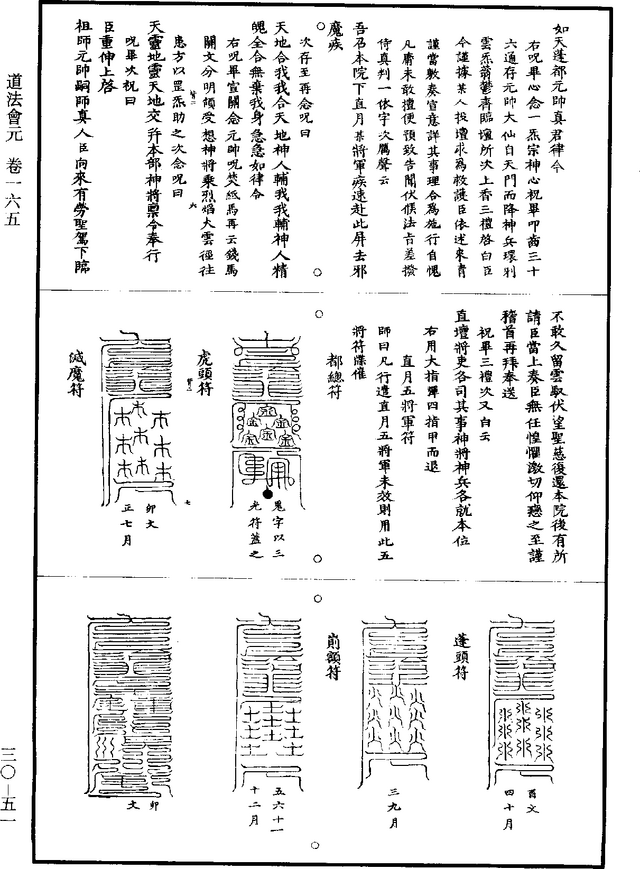 如天蓬都元帥真君律令
右呪畢心念一炁宗神心祝畢叩齒三十
六通存元帥大仙自天門而降神兵環列
雲炁蓊鬱齊臨壇所次上香三禮啓白臣
今謹據某人投壇求為救護臣依述來意
謹當敷奏宣意詳其事理合為施行自愧
凡庸未敢擅便預致告聞伏候法旨差撥
侍真判一依字次厲聲云
吾召本院下直月某將軍疾速赴此屏去邪
魔疾
次存至再念呪曰
天地合我我合天地神人輔我我輔神人精
魄全合無棄我身急急如律令
右呪畢宣關念元帥呪焚紙馬再云錢馬
關文分明領受想神將乘烈焰火雲徑往
患方以罡炁助之次念呪曰
天靈地靈天地交并本部神將稟令奉行
呪畢次祝曰
臣重伸上啓
祖師元帥嗣師真人臣向來有勞聖駕下臨
不敢久留雲馭伏望聖慈復還本院後有所
請臣當上奏臣無任惶懼激切仰戀之至謹
稽首再拜奉送
祝畢三禮次又白云
直壇將吏各司其事神將神兵各就本位
右用大指彈四指甲而退
直月五將軍符
師曰凡行遣直月五將軍未效則用此五
將符牒催
都總符
鬼字以三
光符蓋之
虎頭符
卯文
正七月
滅魔符
酉文
四十月
蓬頭符
三九月
五六十一
十二月
卯
文
道法會元 卷一六五
三〇—五一